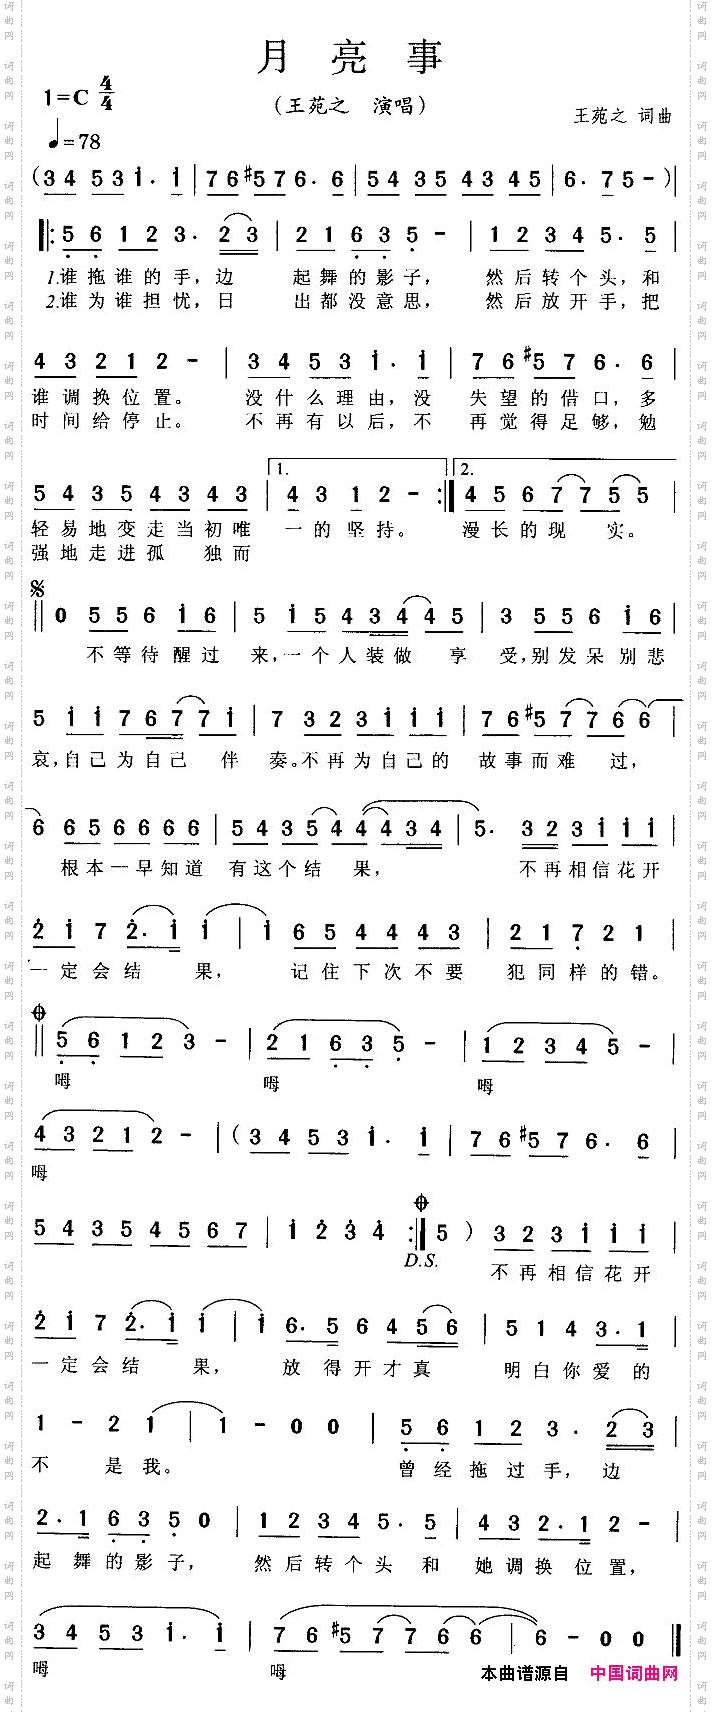 月 亮 事
1=C 4/4
（王苑之 演唱）
王苑之 词曲
♩=78
(3 4 5 3 i · i | 7 6 #5 7 6 · 6 | 5 4 3 5 4 3 4 5 | 6 · 7 5 - ) |
‖: 5 6 1 2 3 · 2 3 | 2 1 6 3 5 - | 1 2 3 4 5 · 5 |
1.谁拖谁的手，边 起舞的影子， 然后转个头，和
2.谁为谁担忧，日 出都没意思， 然后放开手，把
4 3 2 1 2 - | 3 4 5 3 i · i | 7 6 #5 7 6 · 6 |
谁调换位置。 没什么理由，没 失望的借口，多
时间给停止。 不再有以后，不 再觉得足够，勉
1. 2.
5 4 3 5 4 3 4 3 | 4 3 1 2 - :‖ 4 5 6 7 7 5 5 |
轻易地变走当初唯 一的坚持。 漫长的现 实。
强地走进孤 独而
‖ 0 5 5 6 i 6 | 5 i 5 4 3 4 4 5 | 3 5 5 6 i 6 |
不等待醒过 来，一个人装做 享 受，别发呆别悲
5 i i 7 6 7 7 i | 7 3 2 3 i i i | 7 6 #5 7 7 6 6 |
哀，自己为自己 伴 奏。不再为自己的 故事而难 过，
6 6 5 6 6 6 6 | 5 4 3 5 4 4 3 4 | 5 · 3 2 3 i i i |
根本一早知道 有这个结 果， 不再相信花开
2 i 7 2 · i i | i 6 5 4 4 4 3 | 2 1 7 2 1 |
一定会结 果， 记住下次不要 犯同样的错。
‖ 5 6 1 2 3 - | 2 1 6 3 5 - | 1 2 3 4 5 - |
呣 呣 呣
4 3 2 1 2 - | (3 4 5 3 i · i | 7 6 #5 7 6 · 6 |
呣
5 4 3 5 4 5 6 7 | i 2 3 4 :‖ 5 ) 3 2 3 i i i |
D.S.
不再相信花开
2 i 7 2 · i i | i 6 · 5 6 4 5 6 | 5 1 4 3 · 1 |
一定会结 果， 放 得开才真 明白你爱的
1 - 2 1 | 1 - 0 0 | 5 6 1 2 3 · 2 3 |
不 是我。 曾经拖过手，边
2 · 1 6 3 5 0 | 1 2 3 4 5 · 5 | 4 3 2 · 1 2 - |
起 舞的影子， 然后转个头 和 她调换位置，
3 4 5 3 i · i | 7 6 #5 7 7 6 6 | 6 - 0 0 ‖
呣 呣
本曲谱源自 中国词曲网